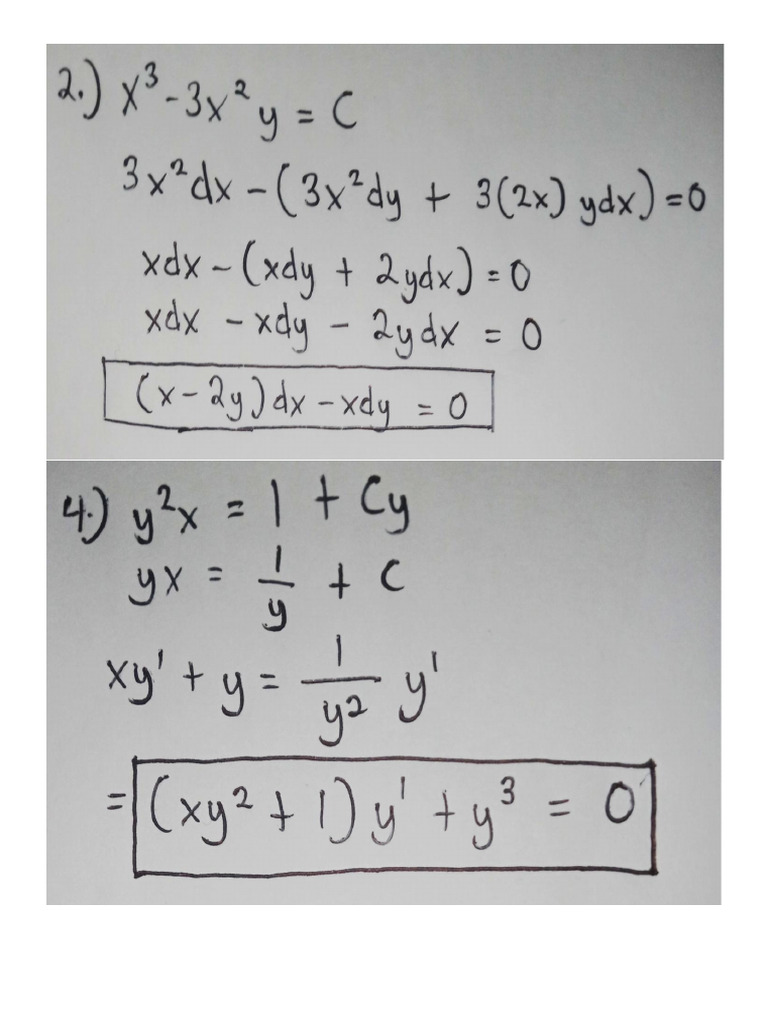 2.) x³ - 3x²y = C
3x²dx - (3x²dy + 3(2x) ydx) = 0
xdx - (xdy + 2ydx) = 0
xdx - xdy - 2ydx = 0
(x - 2y)dx - xdy = 0
4.) y²x = 1 + Cy
yx = 1/y + C
xy' + y = 1/y² y'
= (xy² + 1) y' + y³ = 0